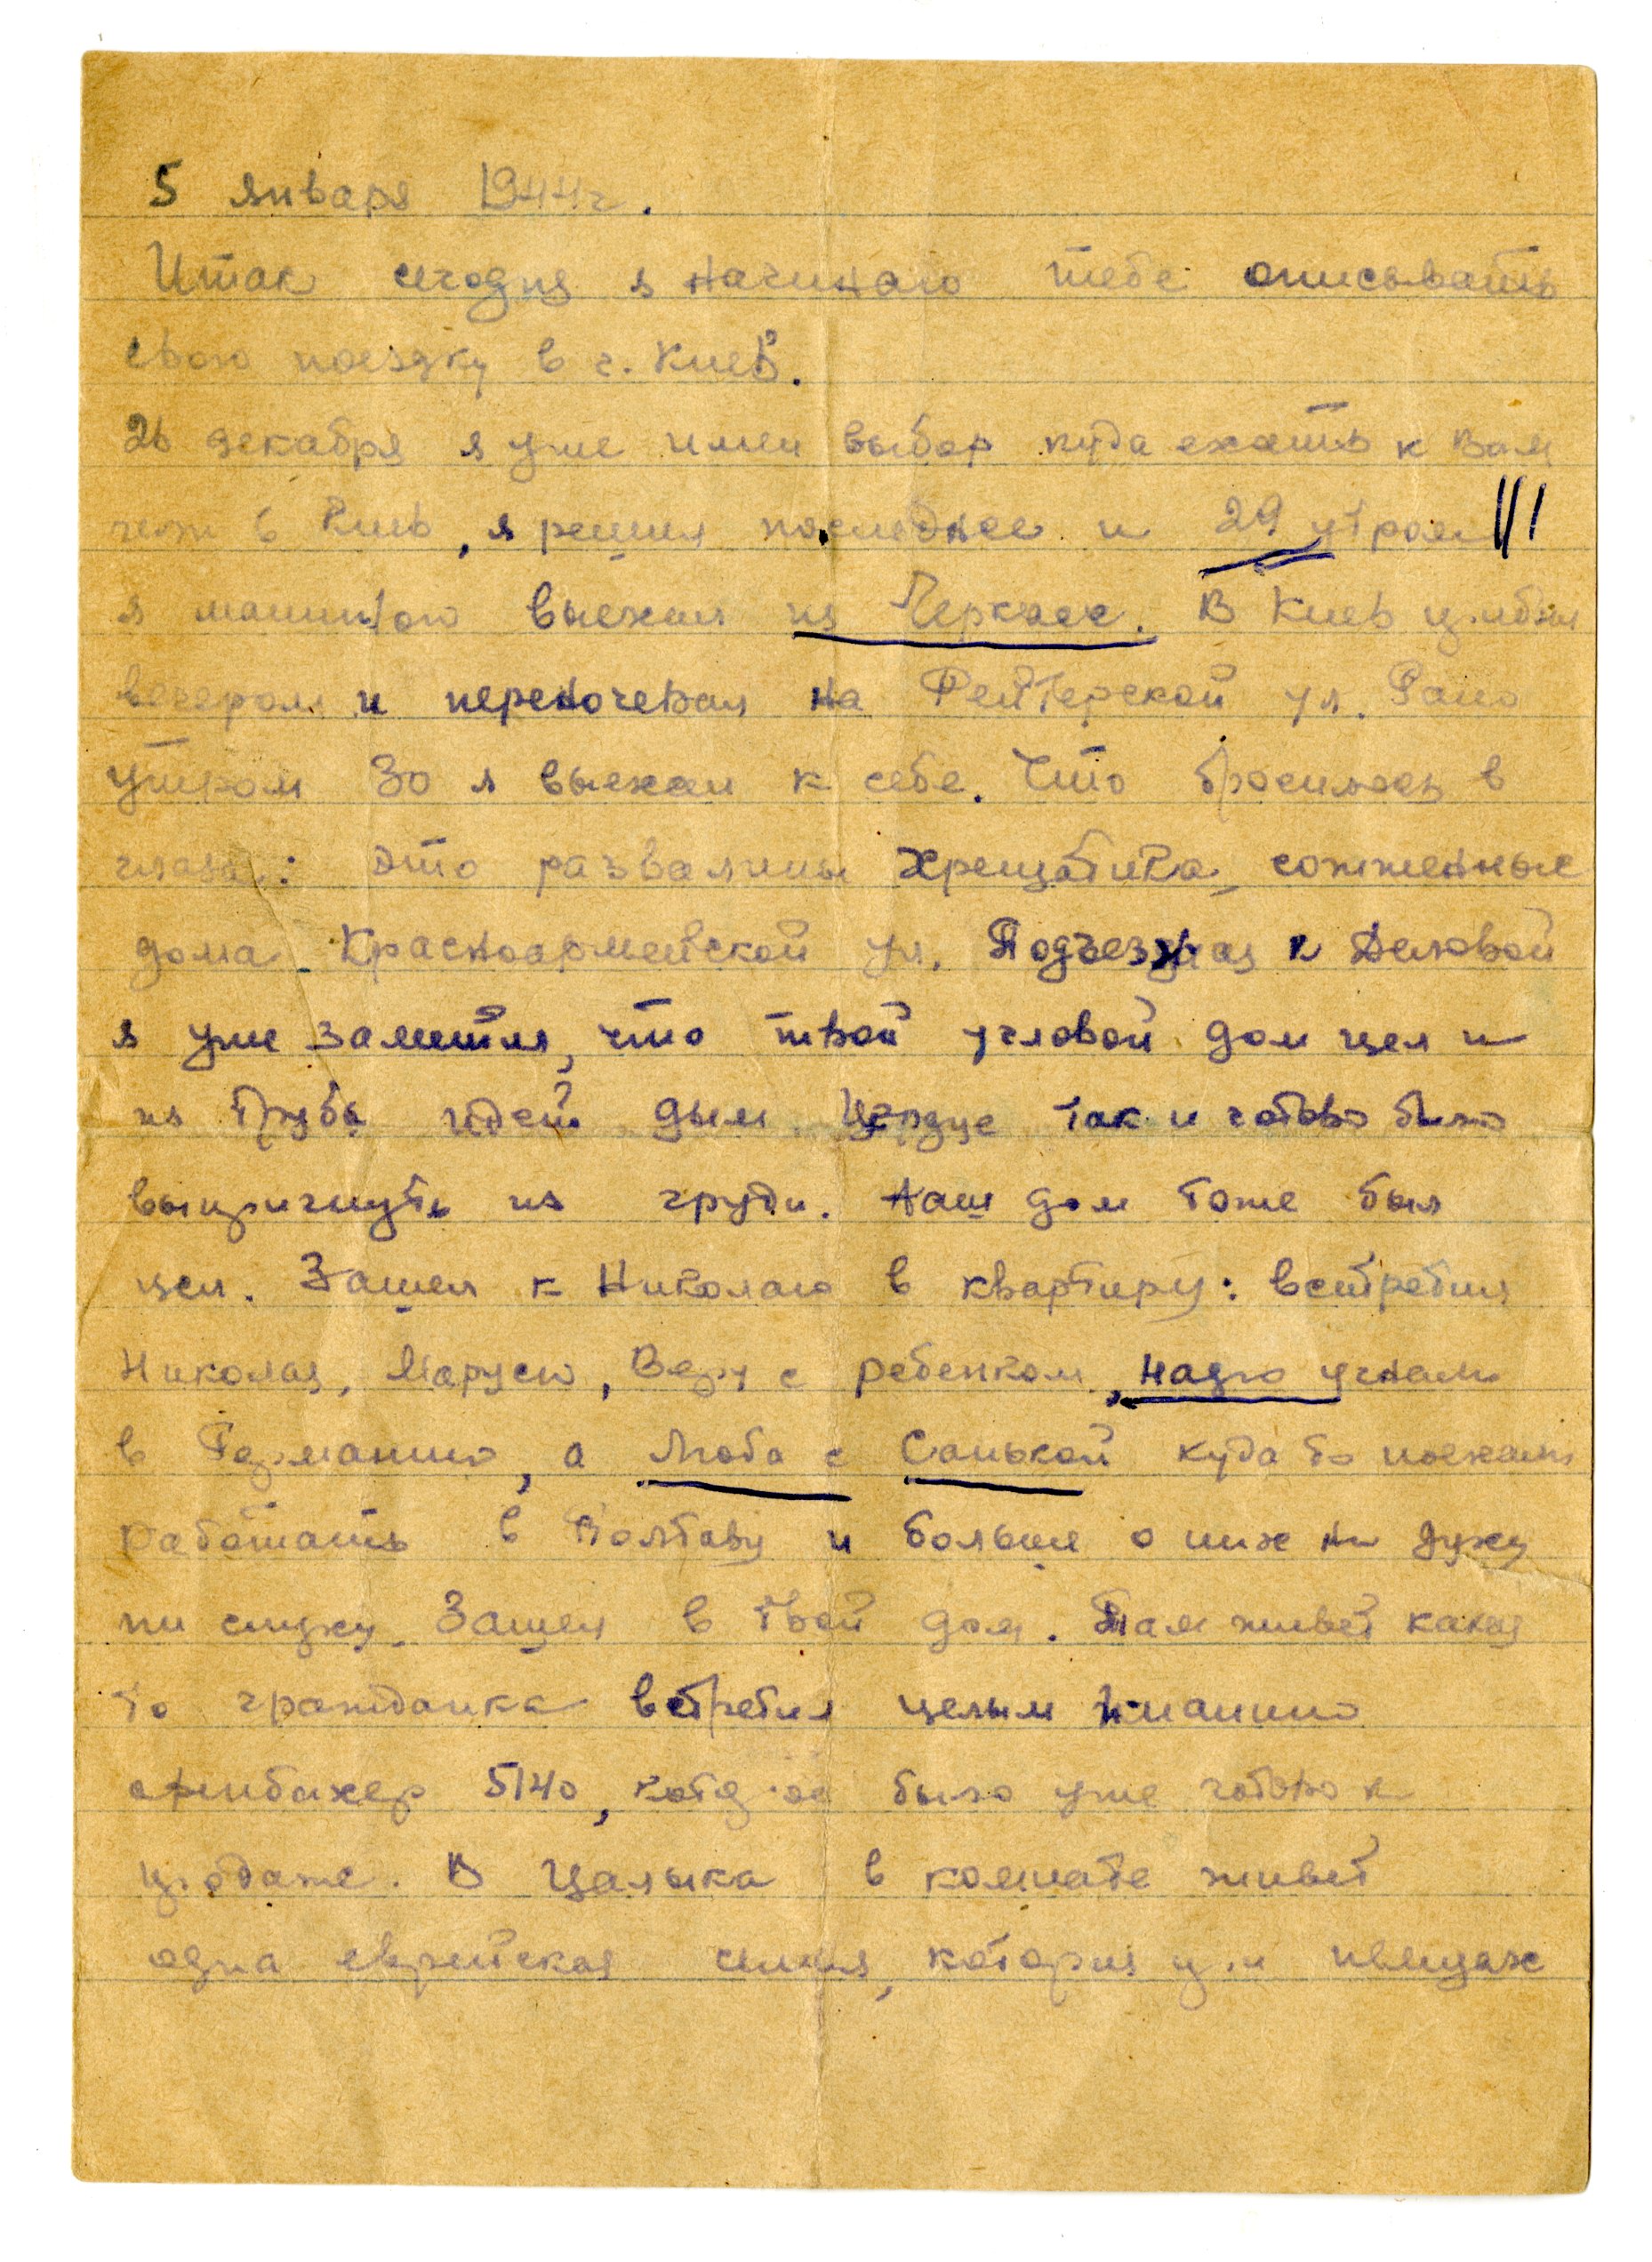 5 января 1944г.
Итак сегодня я начинаю тебе описывать
свою поездку в г. Киев.
26 декабря я уже имел выбор куда ехать к Вам
или в Киев, я решил последнее и 29 утром
я машиною выехал из Черкасс. В Киев прибыл
вечером и переночевал на Рейтерской ул. Рано
утром 30 я выехал к себе. Что бросилось в
глаза: это развалины Хрещатика, сожженные
дома Красноармейской ул. Подъезжая к Деловой
я уже заметил, что твой угловой дом цел и
из трубы идет дым. Сердце так и готово было
выпригнуть из груди. Наш дом тоже был
цел. Зашел к Николаю в квартиру: встретил
Николая, Марусю, Веру с ребенком, Надю угнали
в Германию, а Люба с Санькой куда то поехали
работать в Полтаву и больше о них ни духу
ни слуху. Зашел в твой дом. Там живет какая
то гражданка встретил целым пианино
офенбахер 5140, которое было уже готово к
продаже. В Цалыка в комнате живет
одна еврейская семья, которая при немцах